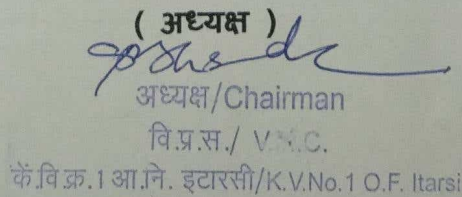 ( अध्यक्ष )
अध्यक्ष/Chairman
वि.प्र.स./ V.M.C.
कें.वि.क्र.1 आ.नि. इटारसी/K.V.No.1 O.F. Itarsi